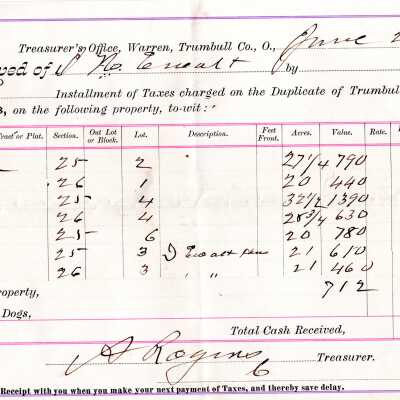 Treasurer's Office, Warren, Trumbull Co., O., June 2
ved of S. H. Ewalt by
Installment of Taxes charged on the Duplicate of Trumbul
3, on the following property, to-wit:
Tract or Plat. Section. Out Lot or Block. Lot. Description. Feet Front. Acres. Value. Rate.
25 2 27 1/4 790
26 1 20 440
25 4 32 1/2 1390
26 4 630
25 6 20 780
25 3 Ewalt 21 610
26 3 " " 21 460
roperty, 712
Dogs,
Total Cash Received,
A Rogers Treasurer.
Receipt with you when you make your next payment of Taxes, and thereby save delay.